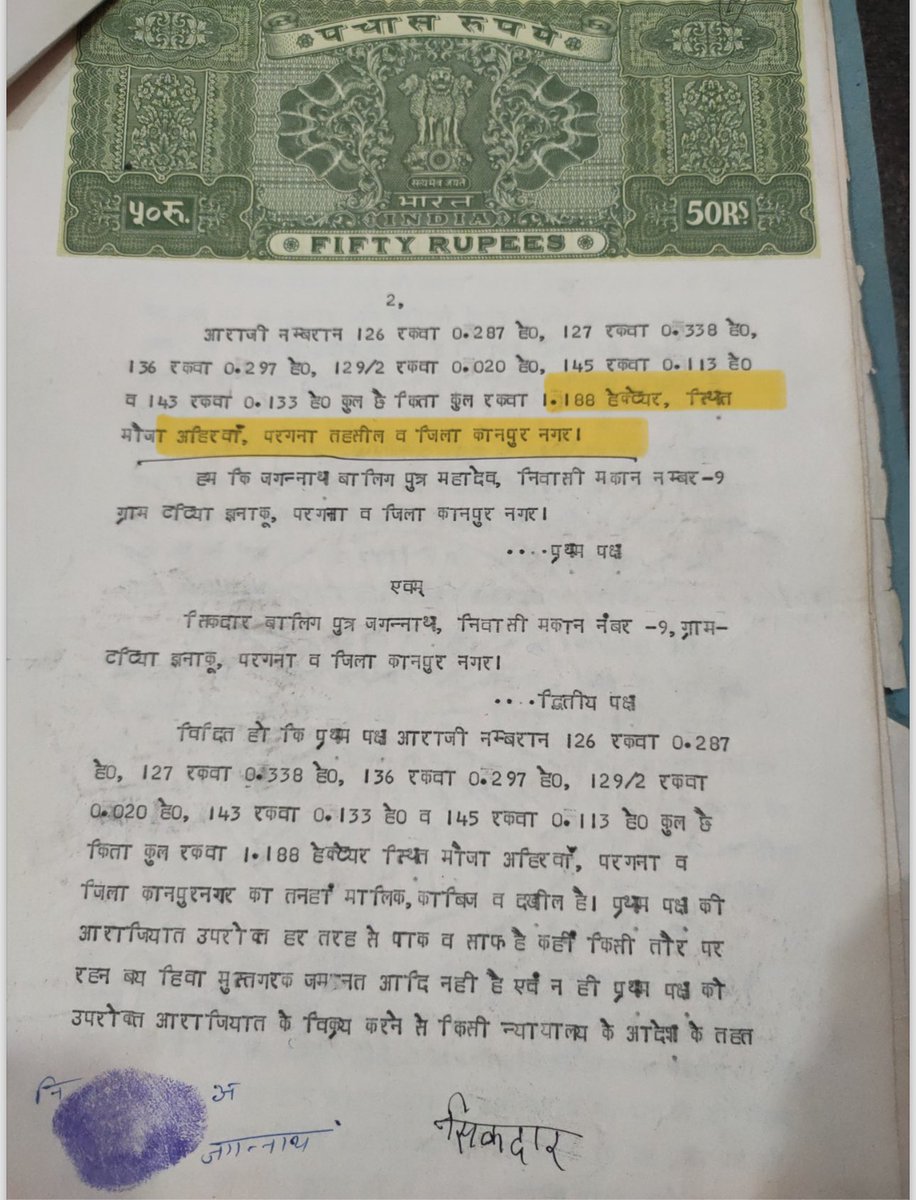 पचास रुपये
सत्यमेव जयते
भारत
INDIA
५०रु.
50RS
FIFTY RUPEES
2,
आराजी नम्बरान 126 रकवा 0.287 हे0, 127 रकवा 0.338 हे0,
136 रकवा 0.297 हे0, 129/2 रकवा 0.020 हे0, 145 रकवा 0.113 हे0
व 143 रकवा 0.133 हे0 कुल छै किता कुल रकवा 1.188 हेक्टेयर, स्थित
मौजा अहिरवाँ, परगना तहसील व जिला कानपुर नगर।
हम कि जगन्नाथ बालिग पुत्र महादेव, निवासी मकान नम्बर-9
ग्राम टटिया झनाकू, परगना व जिला कानपुर नगर।
....प्रथम पक्ष
एवम्
सिकदार बालिग पुत्र जगन्नाथ, निवासी मकान नंबर -9, ग्राम-
टटिया झनाकू, परगना व जिला कानपुर नगर।
....द्वितीय पक्ष
विदित हो कि प्रथम पक्ष आराजी नम्बरान 126 रकवा 0.287
हे0, 127 रकवा 0.338 हे0, 136 रकवा 0.297 हे0, 129/2 रकवा
0.020 हे0, 143 रकवा 0.133 हे0 व 145 रकवा 0.113 हे0 कुल छै
किता कुल रकवा 1.188 हेक्टेयर स्थित मौजा अहिरवाँ, परगना व
जिला कानपुरनगर का तनहां मालिक, काबिज व दखील है। प्रथम पक्ष की
आराजियात उपरोक्त हर तरह से पाक व साफ है कहीं किसी तौर पर
रहन बय हिवा मुस्तगरक जमानत आदि नही है एवं न ही प्रथम पक्ष को
उपरोक्त आराजियात के विक्रय करने से किसी न्यायालय के आदेश के तहत
नि अ
जगन्नाथ
सिकदार